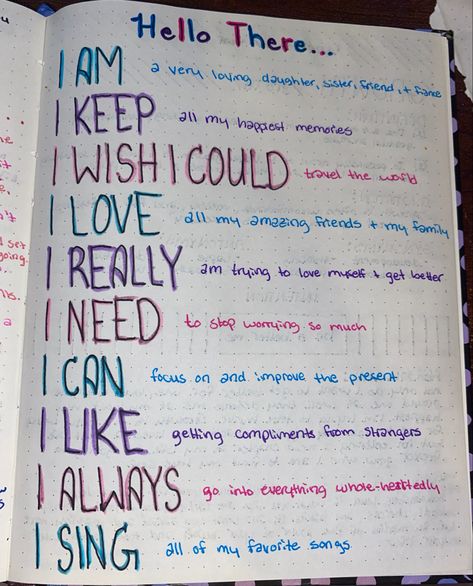 Hello There...
I AM a very loving daughter, sister, friend, + fiance
I KEEP all my happiest memories
I WISH I COULD travel the world
I LOVE all my amazing friends + my family
I REALLY am trying to love myself + get better
I NEED to stop worrying so much
I CAN focus on and improve the present
I LIKE getting compliments from strangers
I ALWAYS go into everything whole-heartedly
I SING all of my favorite songs